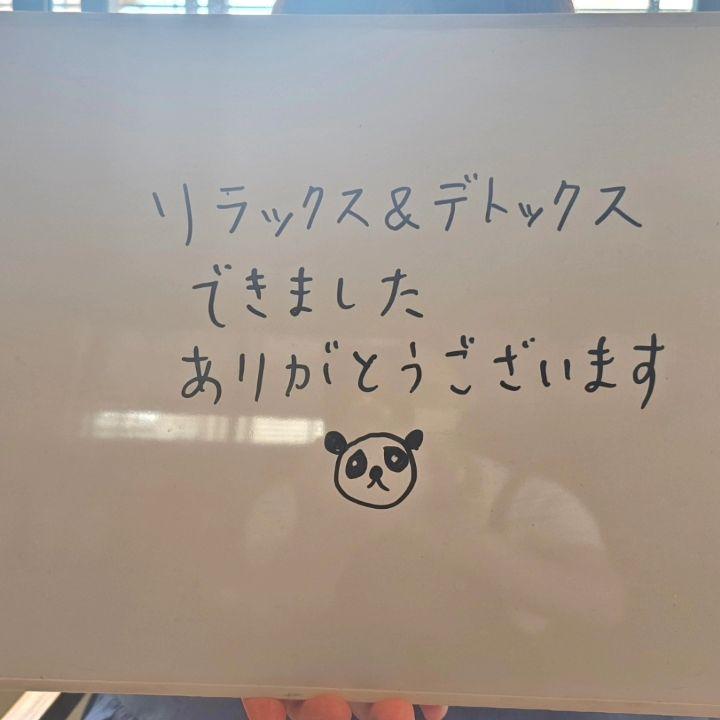 リラックス&デトックス
できました
ありがとうございます